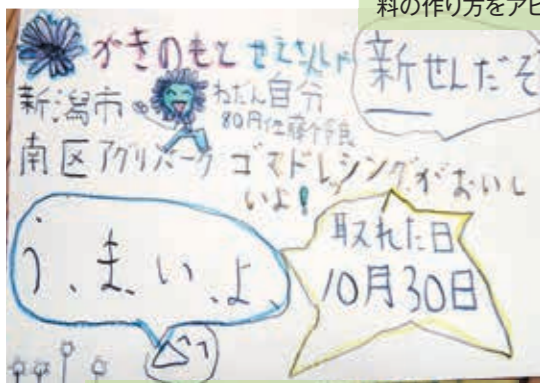 料の作り方をアピ
かきのもと せいさんしゃ
新せんだぞ
新潟市
ねだん自分
80円佐藤
南区アグリパーク ゴマドレッシングがおいし
いよ!
う、ま、い、よ、
取れた日
10月30日